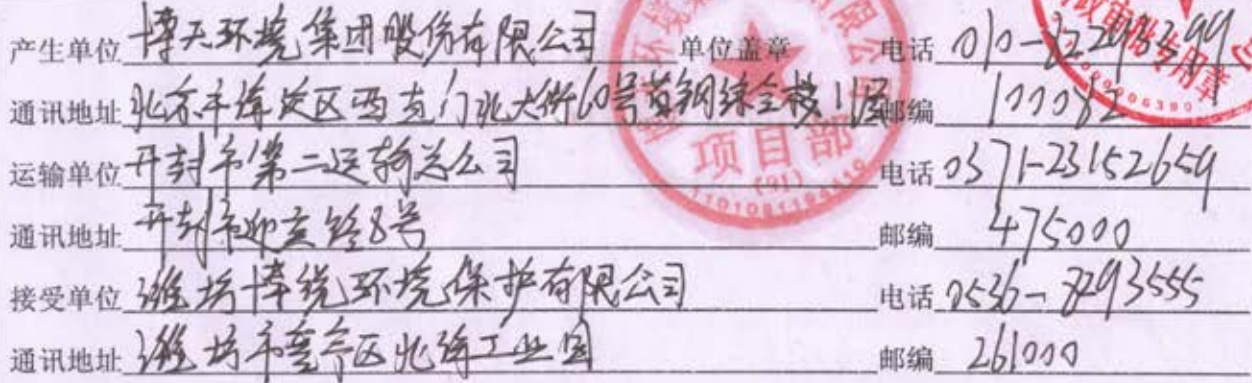 产生单位 博天环境集团股份有限公司 单位盖章 电话 010-82293399
通讯地址 北京市海淀区西直门北大街60号首钢综合楼11层 邮编 100082
运输单位 开封市第二运输总公司 电话 0371-23152659
通讯地址 开封市迎宾路8号 邮编 475000
接受单位 潍坊博锐环境保护有限公司 电话 0536-7293555
通讯地址 潍坊市奎文区北海工业园 邮编 261000
项目部
(01)
专用章